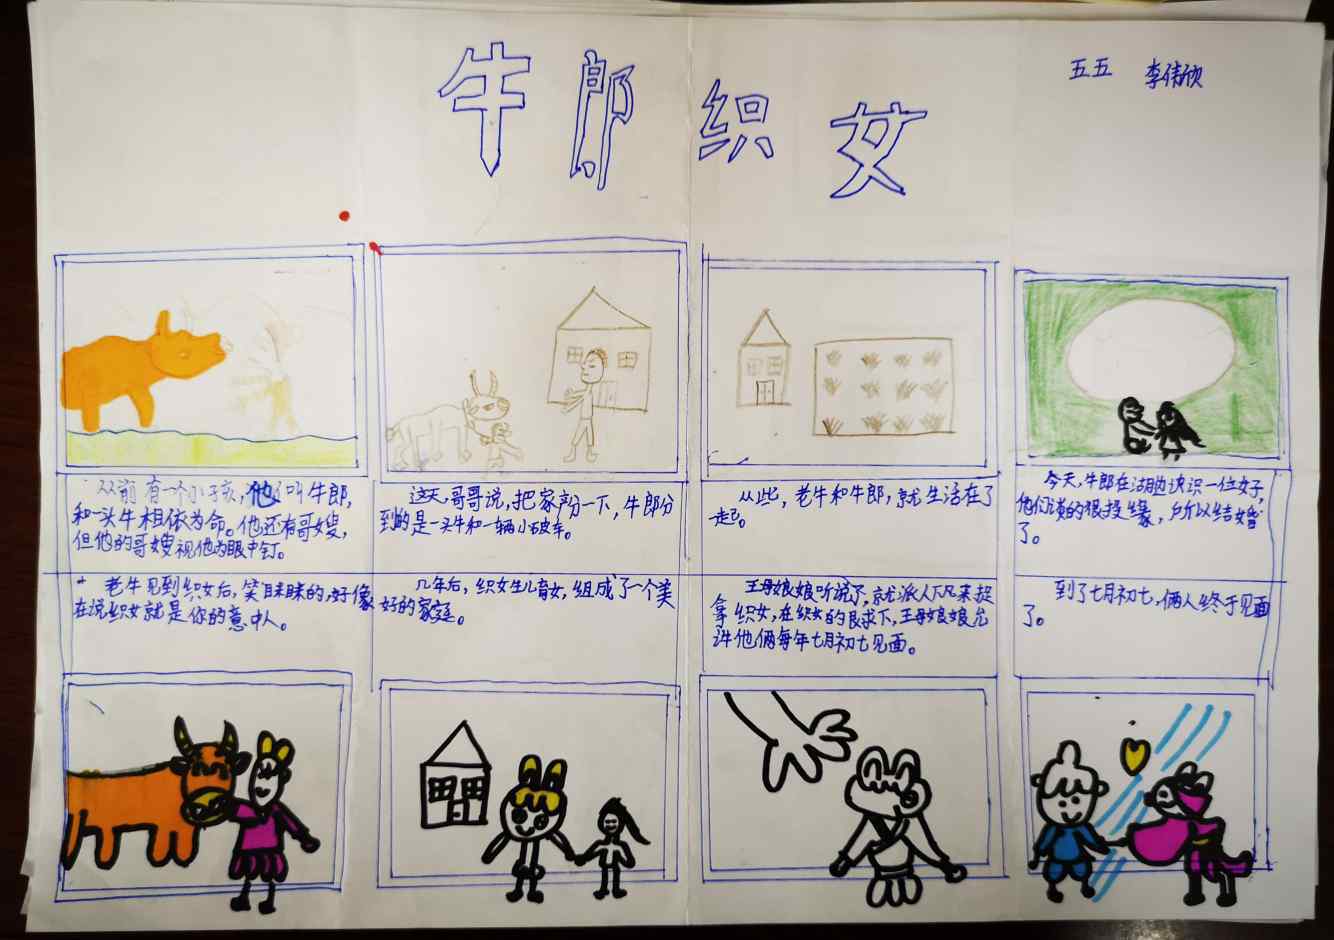 牛郎织女
五五 李倩欣
从前有一个小孩，他叫牛郎，
和一头牛相依为命。他还有哥嫂，
但他的哥嫂视他为眼中钉。
这天，哥哥说，把家产分一下，牛郎分
到的是一头牛和一辆小破车。
从些，老牛和牛郎，就生活在了
一起。
今天，牛郎在湖边认识一位女子，
他们谈的很投缘，所以结婚
了。
老牛见到织女后，笑眯眯的，好像
在说织女就是你的意中人。
几年后，织女生儿育女，组成了一个美
好的家庭。
王母娘娘听说了，就派人下凡来捉
拿织女，在织女的恳求下，王母娘娘允
许他俩每年七月初七见面。
到了七月初七，俩人终于见面
了。